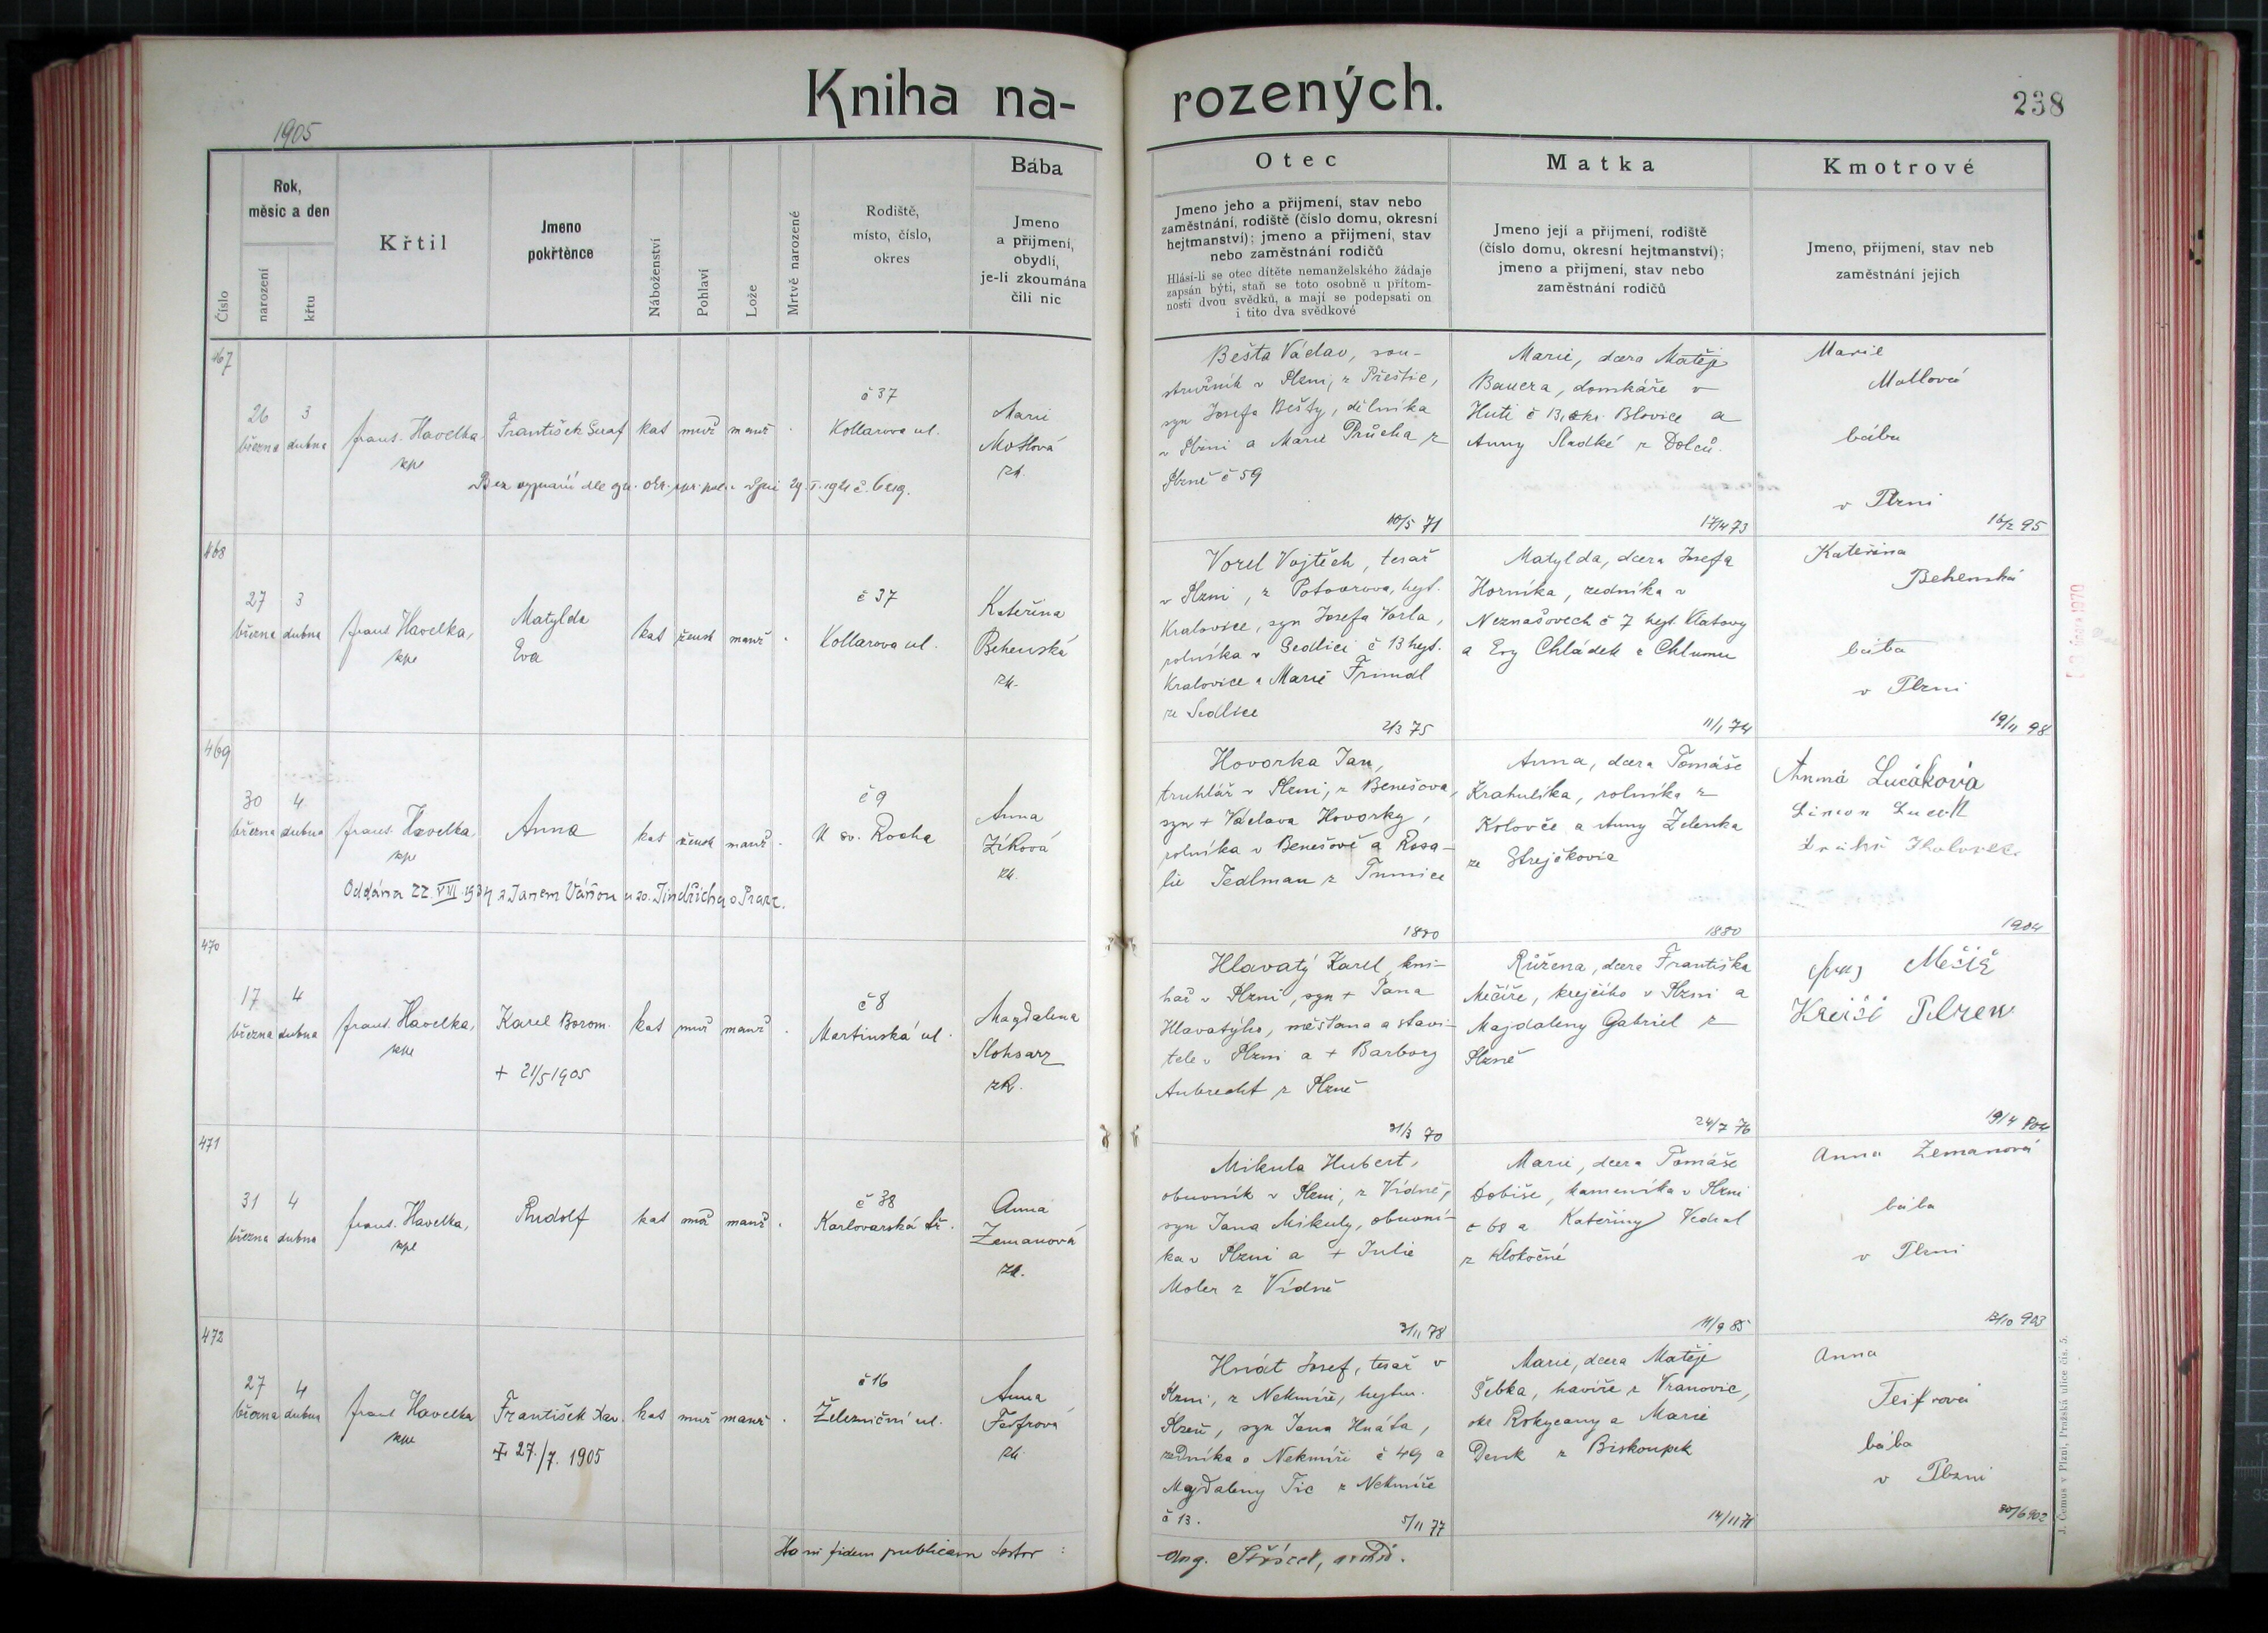 Kniha na-
rozených.
238
1905
Číslo
Rok,
měsíc a den
narození
křtu
Křtil
Jmeno
pokřtěnce
Náboženství
Pohlaví
Lože
Mrtvě narozené
Rodiště,
místo, číslo,
okres
Bába
Jmeno
a přijmení,
obydlí,
je-li zkoumána
čili nic
Otec
Jmeno jeho a přijmení, stav nebo
zaměstnání, rodiště (číslo domu, okresní
hejtmanství); jmeno a přijmení, stav
nebo zaměstnání rodičů
Hlásí-li se otec dítěte nemanželského žádaje
zapsán býti, staň se toto osobně u přítom-
nosti dvou svědků, a mají se podepsati on
i tito dva svědkové
Matka
Jmeno její a přijmení, rodiště
(číslo domu, okresní hejtmanství);
jmeno a přijmení, stav nebo
zaměstnání rodičů
Kmotrové
Jmeno, přijmení, stav neb
zaměstnání jejich
467
26
března
3
dubna
frant. Havelka
kpl
František Seraf
kat
muž
manž
č 37
Kollarova ul.
Marie
Mottlová
zk.
Bez vyznání dle 29. I. 1921 č. 6219.
Bešta Václav, sou-
stružník v Plzni, z Přeštic,
syn Josefa Bešty, dělníka
v Plzni a Marie Průcha z
Plzně č 59
10/5 71
Marie, dcera Matěje
Bauera, domkáře v
Huti č 13, okr. Blovice a
Anny Sladké z Dolců.
17/4 73
Marie
Mottlová
bába
v Plzni
16/2 95
468
27
března
3
dubna
frant Havelka,
kpl
Matylda
Eva
kat
žensk
manž
č 37
Kollarova ul.
Kateřina
Behenská
zk.
Vorel Vojtěch, tesař
v Plzni, z Potvorova, hejt.
Kralovice, syn Josefa Vorla,
rolníka v Sedlici č 13 hejt.
Kralovice a Marie Frundl
ze Sedlice
2/3 75
Matylda, dcera Josefa
Horníka, zedníka v
Neznašovech č 7 hejt Klatovy
a Evy Chládek z Chlumu
11/1 74
Kateřina
Behenská
bába
v Plzni
19/11 98
469
30
března
4
dubna
frant. Havelka,
kpl
Anna
kat
žensk
manž
č 9
U sv. Rocha
Anna
Zíková
zk.
Oddána 22. VII. 1934 s Janem Váňou u sv. Jindřicha v Praze.
Hovorka Jan,
truhlář v Plzni, z Benešova,
syn + Václava Hovorky,
rolníka v Benešově a Rosa-
lie Tedlman z
1880
Anna, dcera Tomáše
Krahulíka, rolníka z
Koloveče a Anny Zelenka
ze Strejčkovic
1880
Anna Lucáková
1904
470
17
března
4
dubna
frant. Havelka,
kpl
Karel Borom.
+ 21/5 1905
kat
muž
manž
č 8
Martinská ul.
Magdalena
zk.
Hlavatý Karel, kni-
hař v Plzni, syn + Jana
Hlavatýho, měšťana a stavi-
tele v Plzni a + Barbory
Aubrecht z Plzně
31/3 70
Růžena, dcera Františka
Mečíře, krejčího v Plzni a
Majdaleny Gabriel z
Plzně
24/7 76
Mečíř
Krejčí Plzen
19/4 904
471
31
března
4
dubna
frant. Havelka,
kpl
Rudolf
kat
muž
manž
č 38
Karlovarská tř.
Anna
Zemanová
zk.
Mikula Hubert,
obuvník v Plzni, z Vídně,
syn Jana Mikuly, obuvní-
ka v Plzni a + Julie
Moler z Vídně
3/11 78
Marie, dcera Tomáše
Dobiše, kameníka v Plzni
č 68 a Kateřiny Vedral
z Klokočné
11/9 85
Anna Zemanová
bába
v Plzni
903
472
27
března
4
dubna
frant Havelka
kpl
František Xav.
+ 27./7. 1905
kat
muž
manž
č 16
Železniční ul.
Anna
Teifrová
zk.
Hnát Josef, tesař v
Plzni, z Nekmíře, hejtm.
Plzeň, syn Jana Hnáta,
zedníka v Nekmíři č 49 a
Majdaleny Tic z Nekmíře
č 13.
5/11 77
Marie, dcera Matěje
Šebka, havíře z Vranovic,
okr Rokycany a Marie
Denk z Biskoupek
14/11 71
Anna
Teifrová
bába
v Plzni
30/6 902
fidem publicam testor :
J. Čermus v Plzni, Pražská ulice čís. 5.